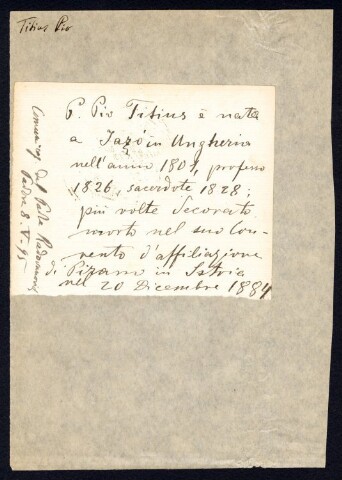 Titius Pio
P. Pio Titius è nato
a Jazó in Ungheria
nell'anno 1801, professo
1826, sacerdote 1828;
più volte decorato
morto nel suo Con-
vento d'affiliazione
di Pirano in Istria
nel 20 Dicembre 1884
del Padre
Padova 8. V.